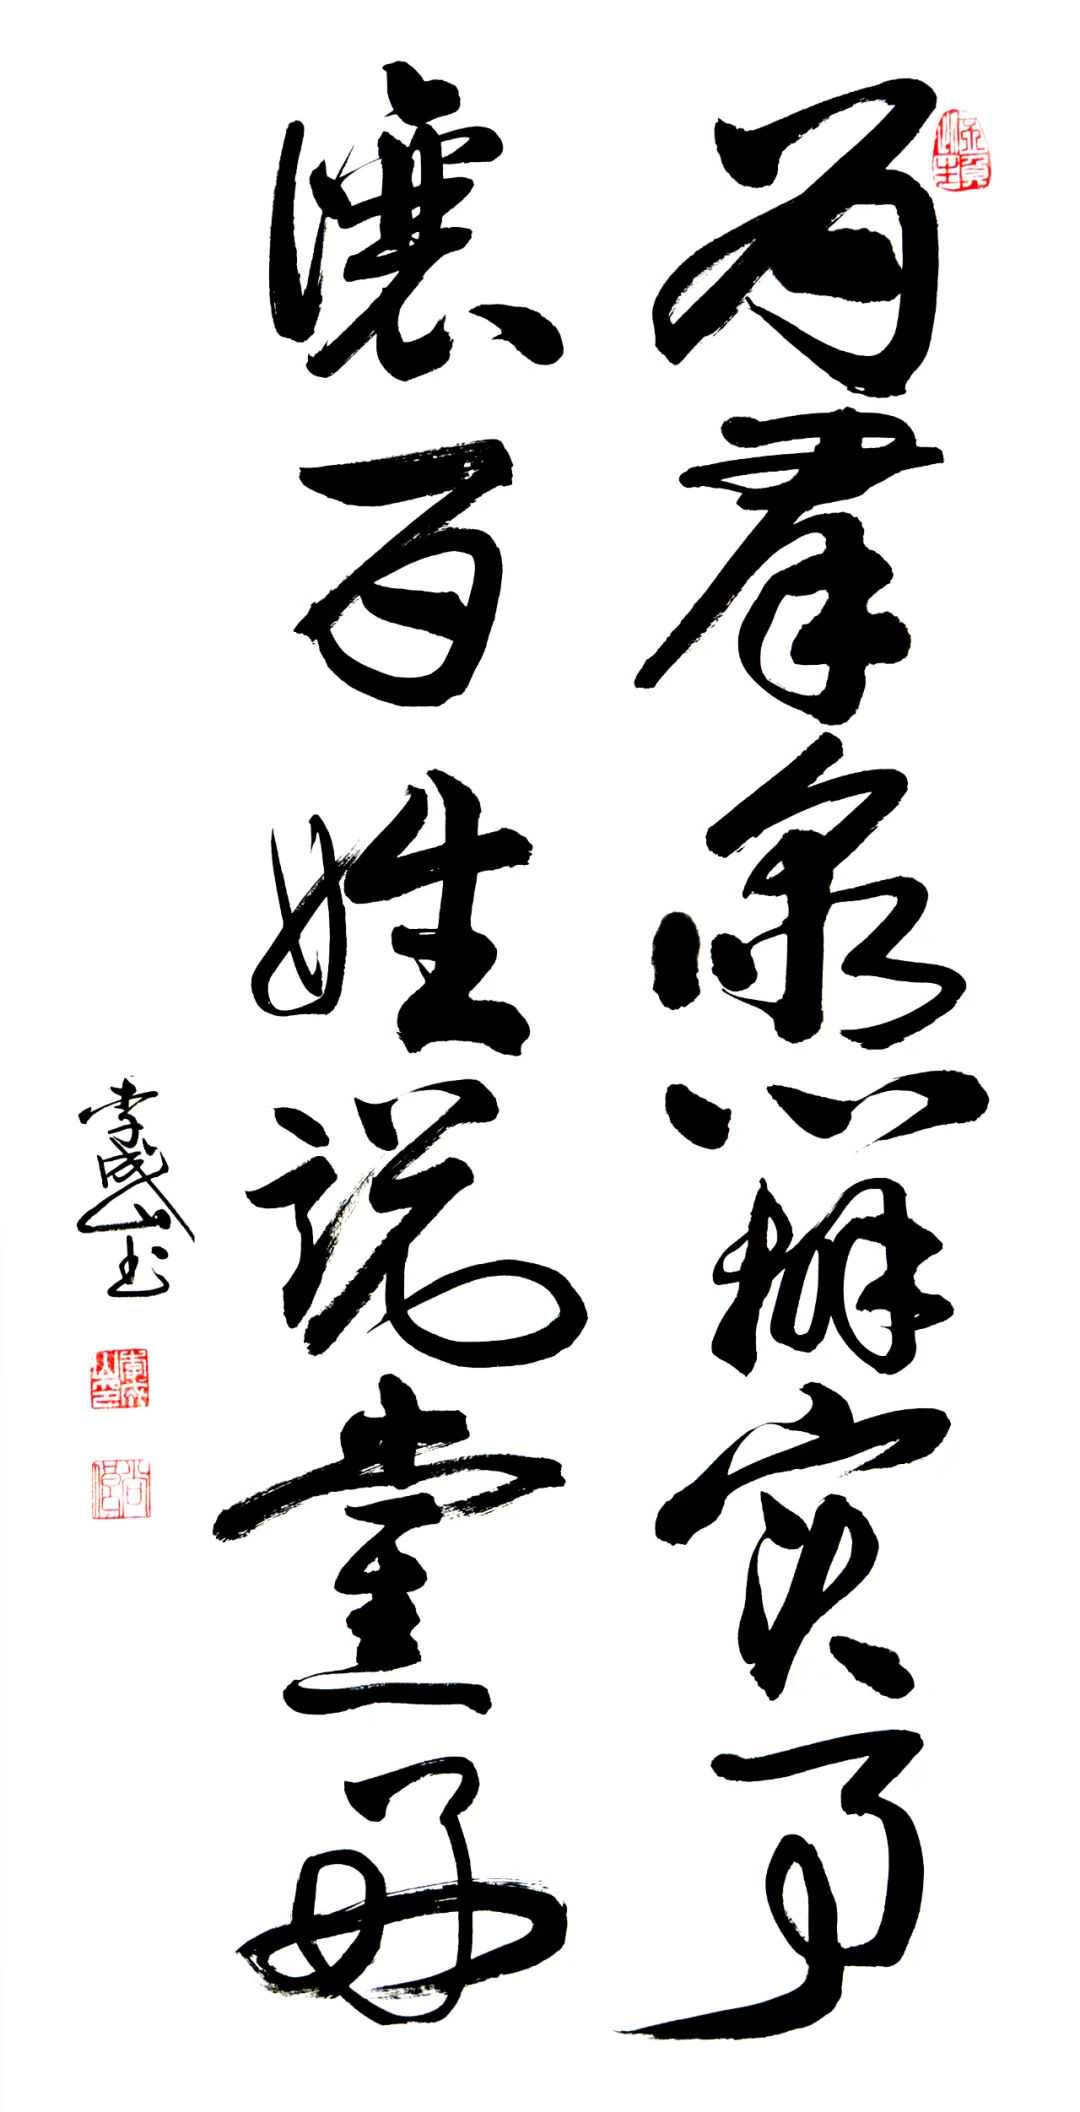 为群众办实事
让百姓说党好
李成山书